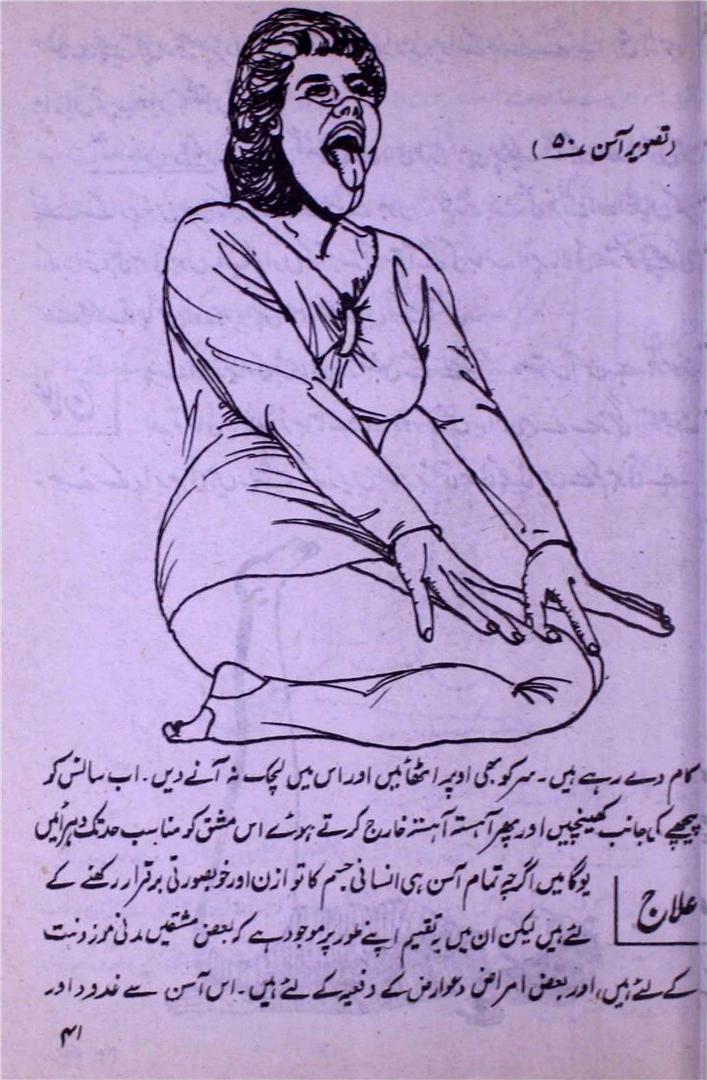 (تصویر آسن ۵۰)
کام دے رہے ہیں۔ سر کو بھی اوپر اٹھائیں اور اس میں لچک نہ آنے دیں۔ اب سانس کو
پیچھے کی جانب کھینچیں اور پھر آہستہ آہستہ خارج کرتے ہوئے اس مشق کو مناسب حد تک دہرائیں
علاج
یوگا میں اگرچہ تمام آسن ہی انسانی جسم کا توازن اور خوبصورتی برقرار رکھنے کے
لئے ہیں لیکن ان میں یہ تقسیم اپنے طور پر موجود ہے کہ بعض مشقیں بدنی موزونیت
کے لئے ہیں، اور بعض امراض و عوارض کے دفعیہ کے لئے ہیں۔ اس آسن سے غدود اور
۴۱